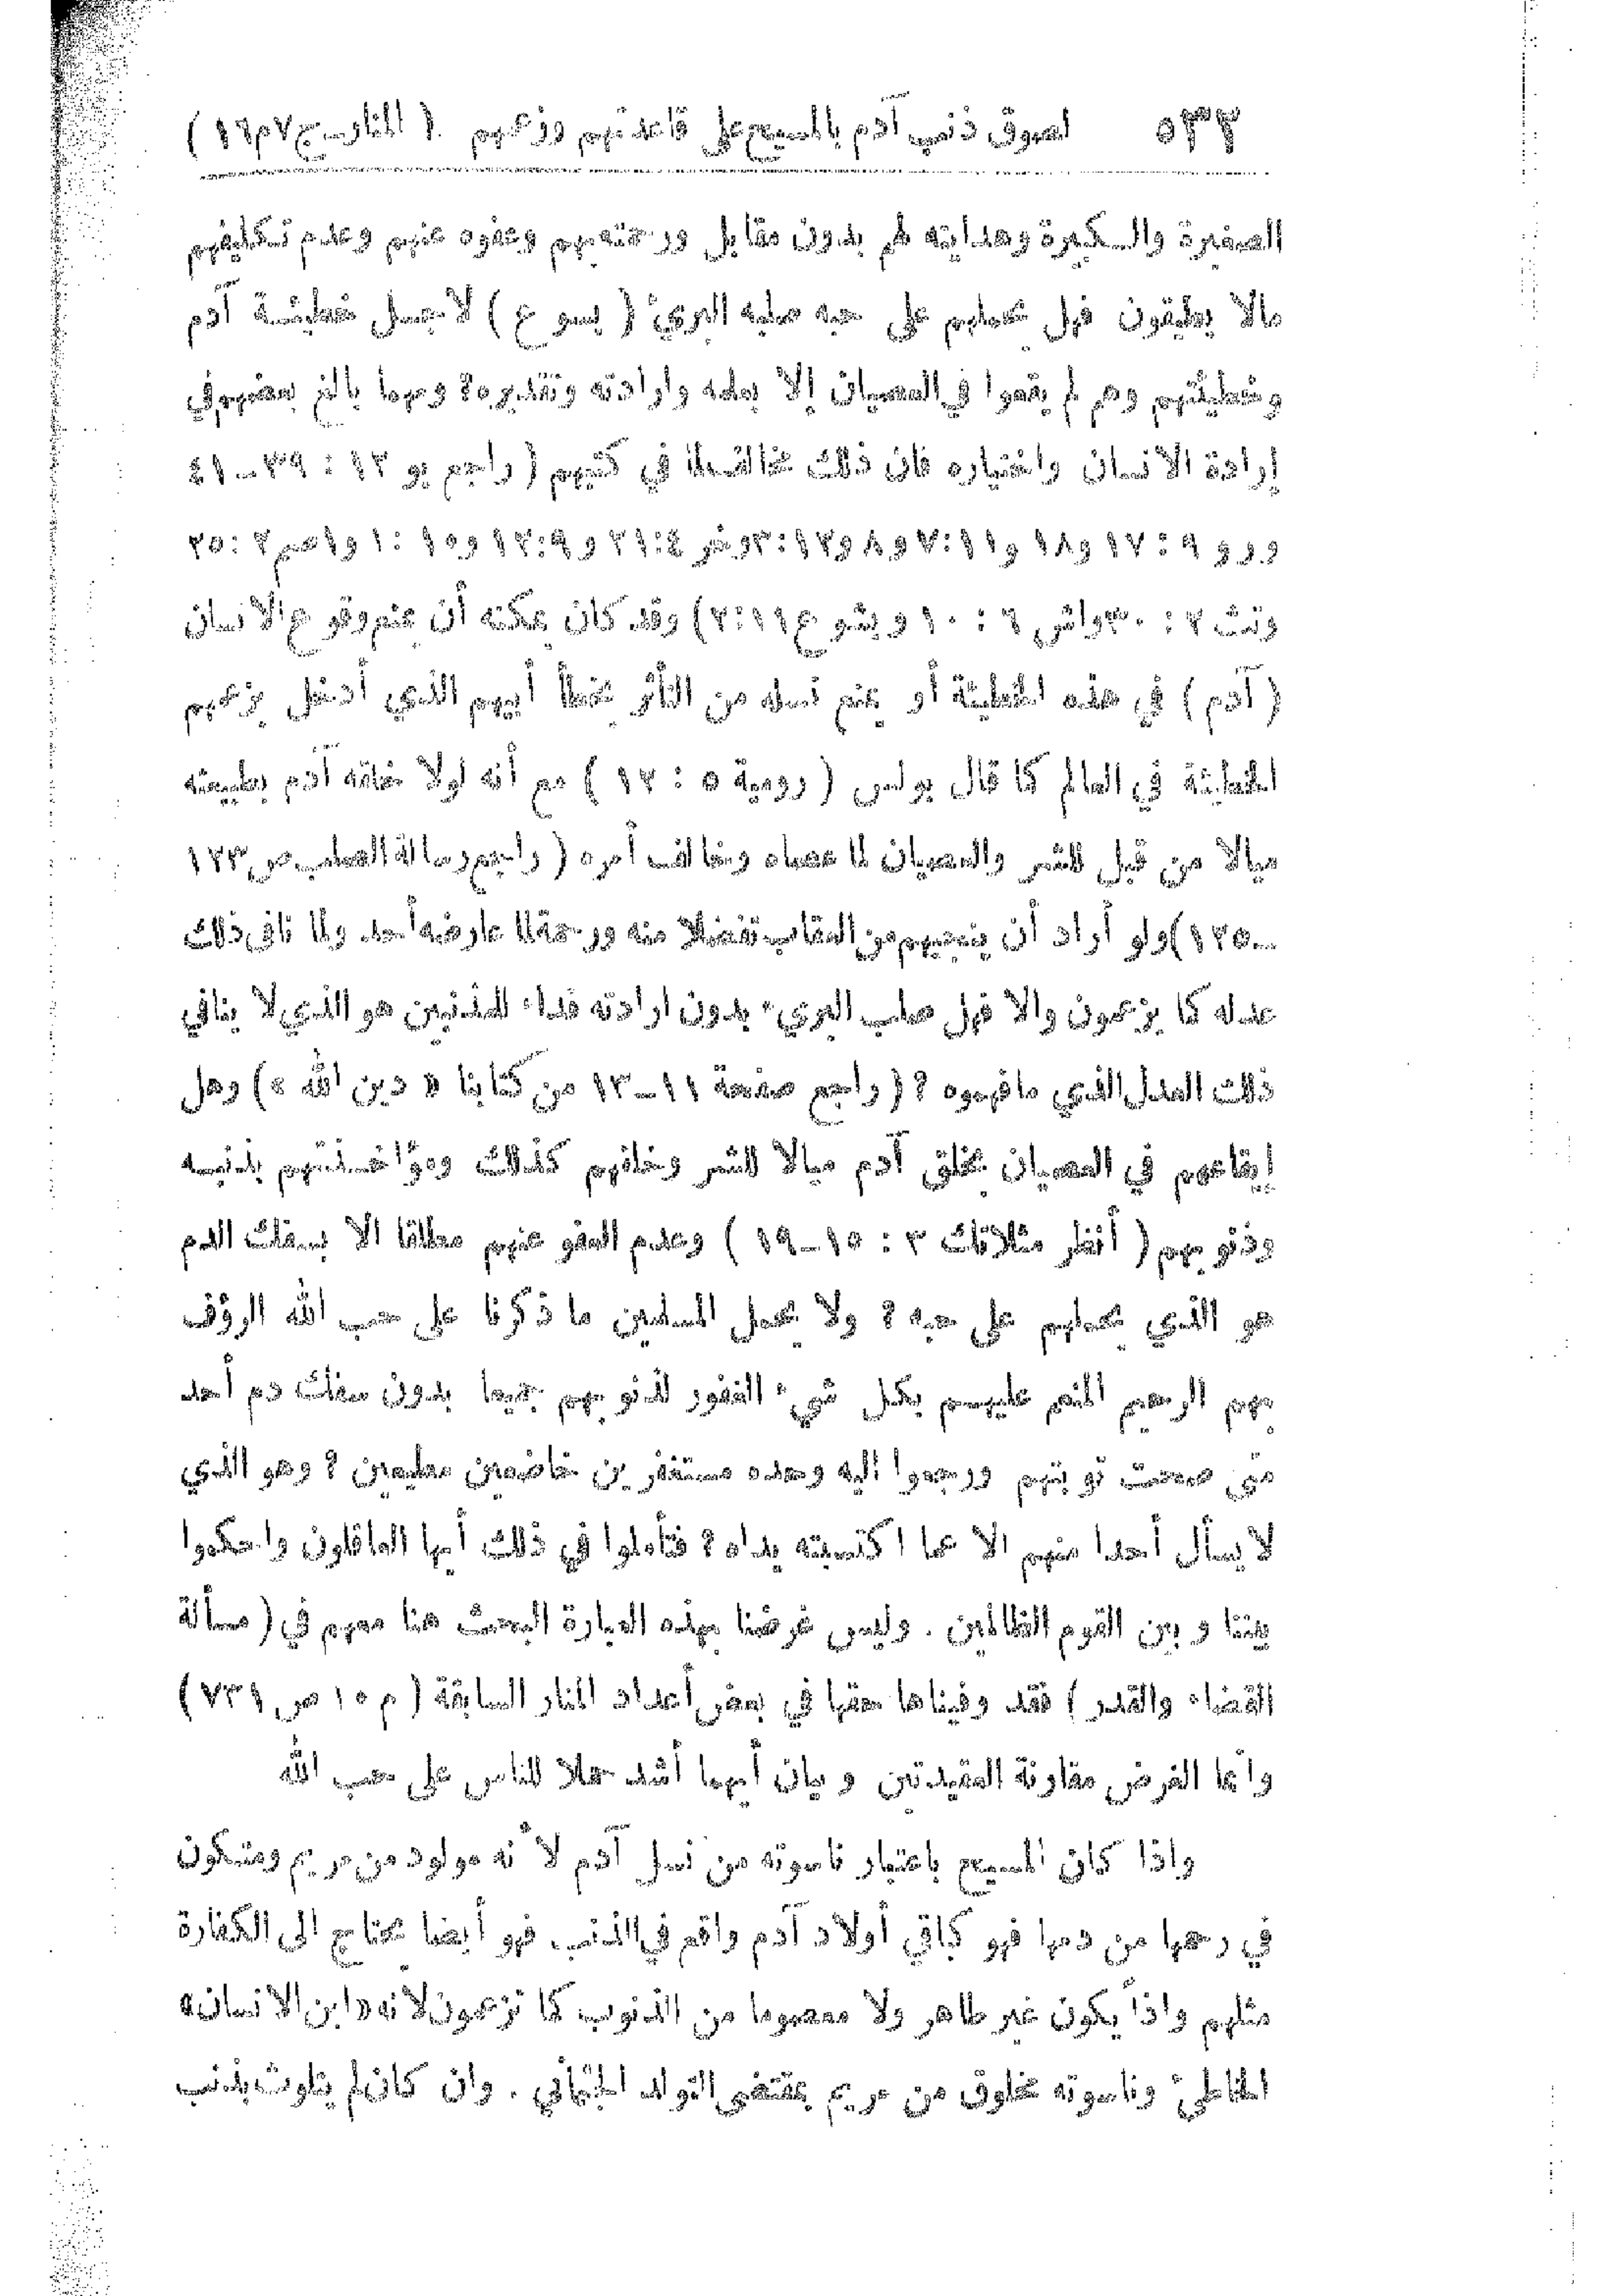 لصوق ذنب آدم بالمسيح على قاعدتهم وزعمهم . ( المنار ـ ج ٧ م ١٦ )
الصغيرة والكبيرة وهدايته لهم بدون مقابل ورحمته بهم وعفوه عنهم وعدم تكليفهم
مالا يطيقون فهل يحملهم على حبه صلبه البريءَ ( يسوع ) لأجل خطيئة آدم
وخطيئتهم وهم لم يقعوا في العصيان إلا بعلمه وارادته وتقديره؟ ومهما بالغ بعضهم في
إرادة الانسان واختياره فان ذلك مخالف لما في كتبهم ( راجع يو ١٢ : ٣٩ ـ ٤١
ورو ٩ : ١٧ و١٨ و١١ : ٧ و٨ و١٢ : ٣ وخر ٤ : ٢١ و٩ : ١٢ و١٠ : ١ و١صم ٢ : ٢٥
وتث ٢ : ٣٠ واش ٦ : ١٠ ويشوع ١١ : ٢٠) وقد كان يمكنه أن يمنع وقوع الانسان
( آدم ) في هذه الخطيئة أو يمنع نسله من التأثر بخطأ أبيهم الذي أدخل بزعمهم
الخطيئة في العالم كما قال بولس ( رومية ٥ : ١٢ ) مع أنه لولا خلقه آدم بطبيعته
ميالا من قبل للشر والعصيان لما عصاه وخالف أمره ( راجع رسالة الصلب ص ١٢٣
ـ ١٢٥) ولو أراد أن ينجيهم من العقاب تفضلا منه ورحمة لما عارضه أحد ولما نافى ذلك
عدله كما يزعمون والا فهل صلب البريء بدون ارادته فداء للمذنبين هو الذي لا ينافي
ذلك العدل الذي ما فهموه ؟ ( راجع صفحة ١١ـ١٣ من كتابنا « دين الله » ) وهل
إيقاعهم في العصيان بخلق آدم ميالا للشر وخلقهم كذلك ومؤاخذتهم بذنبه
وذنوبهم ( أنظر ٣ : ١٥ـ١٩ ) وعدم العفو عنهم مطلقا الا بسفك الدم
هو الذي يحملهم على حبه ؟ ولا يحمل المسلمين ما ذكرنا على حب الله الرؤف
بهم الرحيم المنعم عليهم بكل شيء الغفور لذنوبهم جميعا بدون سفك دم أحد
متى صحت توبتهم ورجعوا اليه وحده مستغفرين خاضعين مطيعين ؟ وهو الذي
لا يسأل أحدا منهم الا عما اكتسبته يداه ؟ فتأملوا في ذلك أيها العاقلون واحكموا
بيننا وبين القوم الظالمين . وليس غرضنا بهذه العبارة البحث هنا معهم في ( مسألة
القضاء والقدر ) فقد وفيناها حقها في بعض أعداد المنار السابقة ( م ١٥ ص ٧٣٩ )
وانما الغرض مقارنة العقيدتين وبيان أيهما أشد حملا للناس على حب الله
واذا كان المسيح باعتبار ناسوته من نسل آدم لأنه مولود من مريم ومتكون
في رحمها من دمها فهو كباقي أولاد آدم واقع في الذنب فهو أيضا محتاج الى الكفارة
مثلهم واذاً يكون غير طاهر ولا معصوما من الذنوب كما تزعمون لانه « ابن الانسان »
الخاطئ وناسوته مخلوق من مريم بمقتضى التوالد الجثماني . وان كان لم يتلوث بذنب